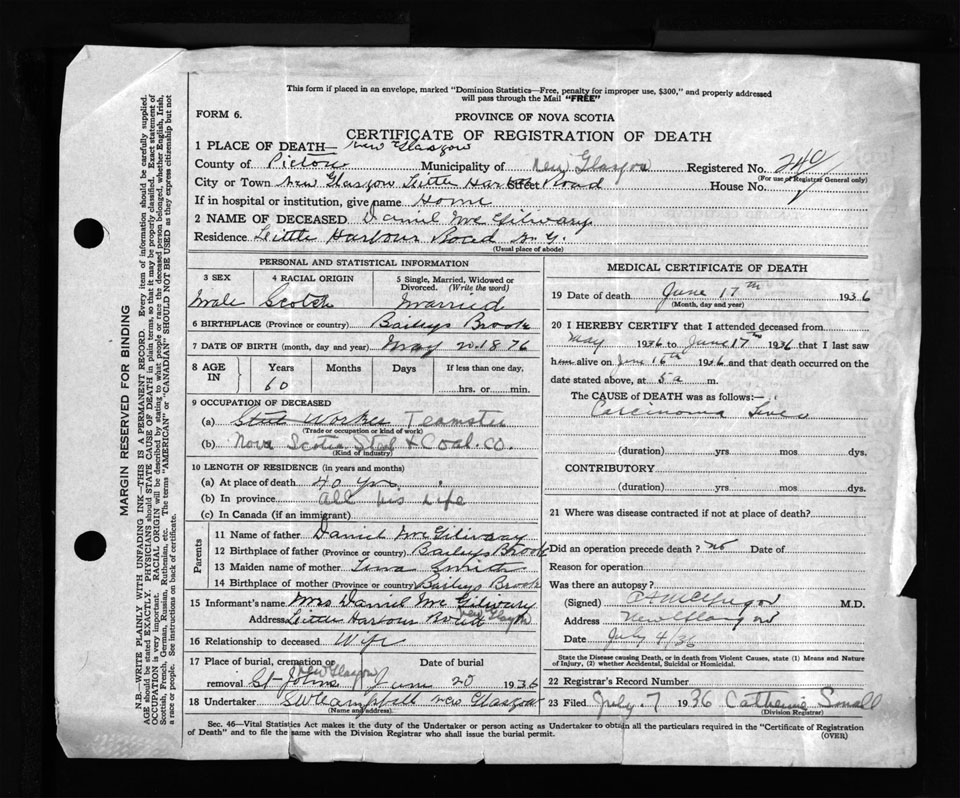 This form if placed in an envelope, marked "Dominion Statistics—Free, penalty for improper use, $300," and properly addressed
will pass through the Mail "FREE"
FORM 6.
PROVINCE OF NOVA SCOTIA
CERTIFICATE OF REGISTRATION OF DEATH
1 PLACE OF DEATH New Glasgow
County of Pictou Municipality of New Glasgow Registered No. 249
(For use of Registrar General only)
City or Town New Glasgow Little Harbour Road House No.
If in hospital or institution, give name Home
2 NAME OF DECEASED Daniel McGilivary
Residence Little Harbour Road N.G.
(Usual place of abode)
PERSONAL AND STATISTICAL INFORMATION
3 SEX 4 RACIAL ORIGIN 5 Single, Married, Widowed or
Divorced. (Write the word)
Male Scotch Married
6 BIRTHPLACE (Province or country) Baileys Brook
7 DATE OF BIRTH (month, day and year) May 20 1876
8 AGE IN Years Months Days If less than one day,
60 hrs. or min.
9 OCCUPATION OF DECEASED
(a) Steel Worker Teamster
(Trade or occupation or kind of work)
(b) Nova Scotia Steel & Coal Co.
(Kind of industry)
10 LENGTH OF RESIDENCE (in years and months)
(a) At place of death 40 yrs.
(b) In province All his Life
(c) In Canada (if an immigrant)
Parents
11 Name of father Daniel McGilivary
12 Birthplace of father (Province or country) Baileys Brook
13 Maiden name of mother Tena
14 Birthplace of mother (Province or country) Baileys Brook
15 Informant's name Mrs Daniel McGilivary
Address Little Harbour Road New Glasgow
16 Relationship to deceased Wife
17 Place of burial, cremation or Date of burial
New Glasgow
removal St Johns June 20 1936
18 Undertaker S W Campbell New Glasgow
(Name and address)
MEDICAL CERTIFICATE OF DEATH
19 Date of death June 17th 1936
(Month, day and year)
20 I HEREBY CERTIFY that I attended deceased from
May 1936 to June 17th 1936 that I last saw
him alive on June 16th 1936 and that death occurred on the
date stated above, at 5 a m.
The CAUSE OF DEATH was as follows:—
Carcinoma Liver
(duration) yrs mos dys.
CONTRIBUTORY
(duration) yrs mos dys.
21 Where was disease contracted if not at place of death?
Did an operation precede death? No Date of
Reason for operation
Was there an autopsy?
(Signed) McGregor M.D.
Address New Glasgow
Date July 4/36
State the Disease causing Death, or in death from Violent Causes, state (1) Means and Nature
of Injury, (2) whether Accidental, Suicidal or Homicidal.
22 Registrar's Record Number
23 Filed July 7 1936 Catherine Small
(Division Registrar)
Sec. 46—Vital Statistics Act makes it the duty of the Undertaker or person acting as Undertaker to obtain all the particulars required in the "Certificate of Registration
of Death" and to file the same with the Division Registrar who shall issue the burial permit. (OVER)
MARGIN RESERVED FOR BINDING
N.B.—WRITE PLAINLY WITH UNFADING INK—THIS IS A PERMANENT RECORD. Every item of information should be carefully supplied.
AGE should be stated EXACTLY. PHYSICIANS should STATE CAUSE OF DEATH in plain terms, so that it may be properly classified. Exact statement of
OCCUPATION is very important. RACIAL ORIGIN will be described by stating to what people or race the deceased person belonged, whether English, Irish,
Scottish, French, German, Russian, Ruthenian, etc. The terms "AMERICAN" or "CANADIAN" SHOULD NOT BE USED as they express citizenship but not
a race or people. See instructions on back of certificate.